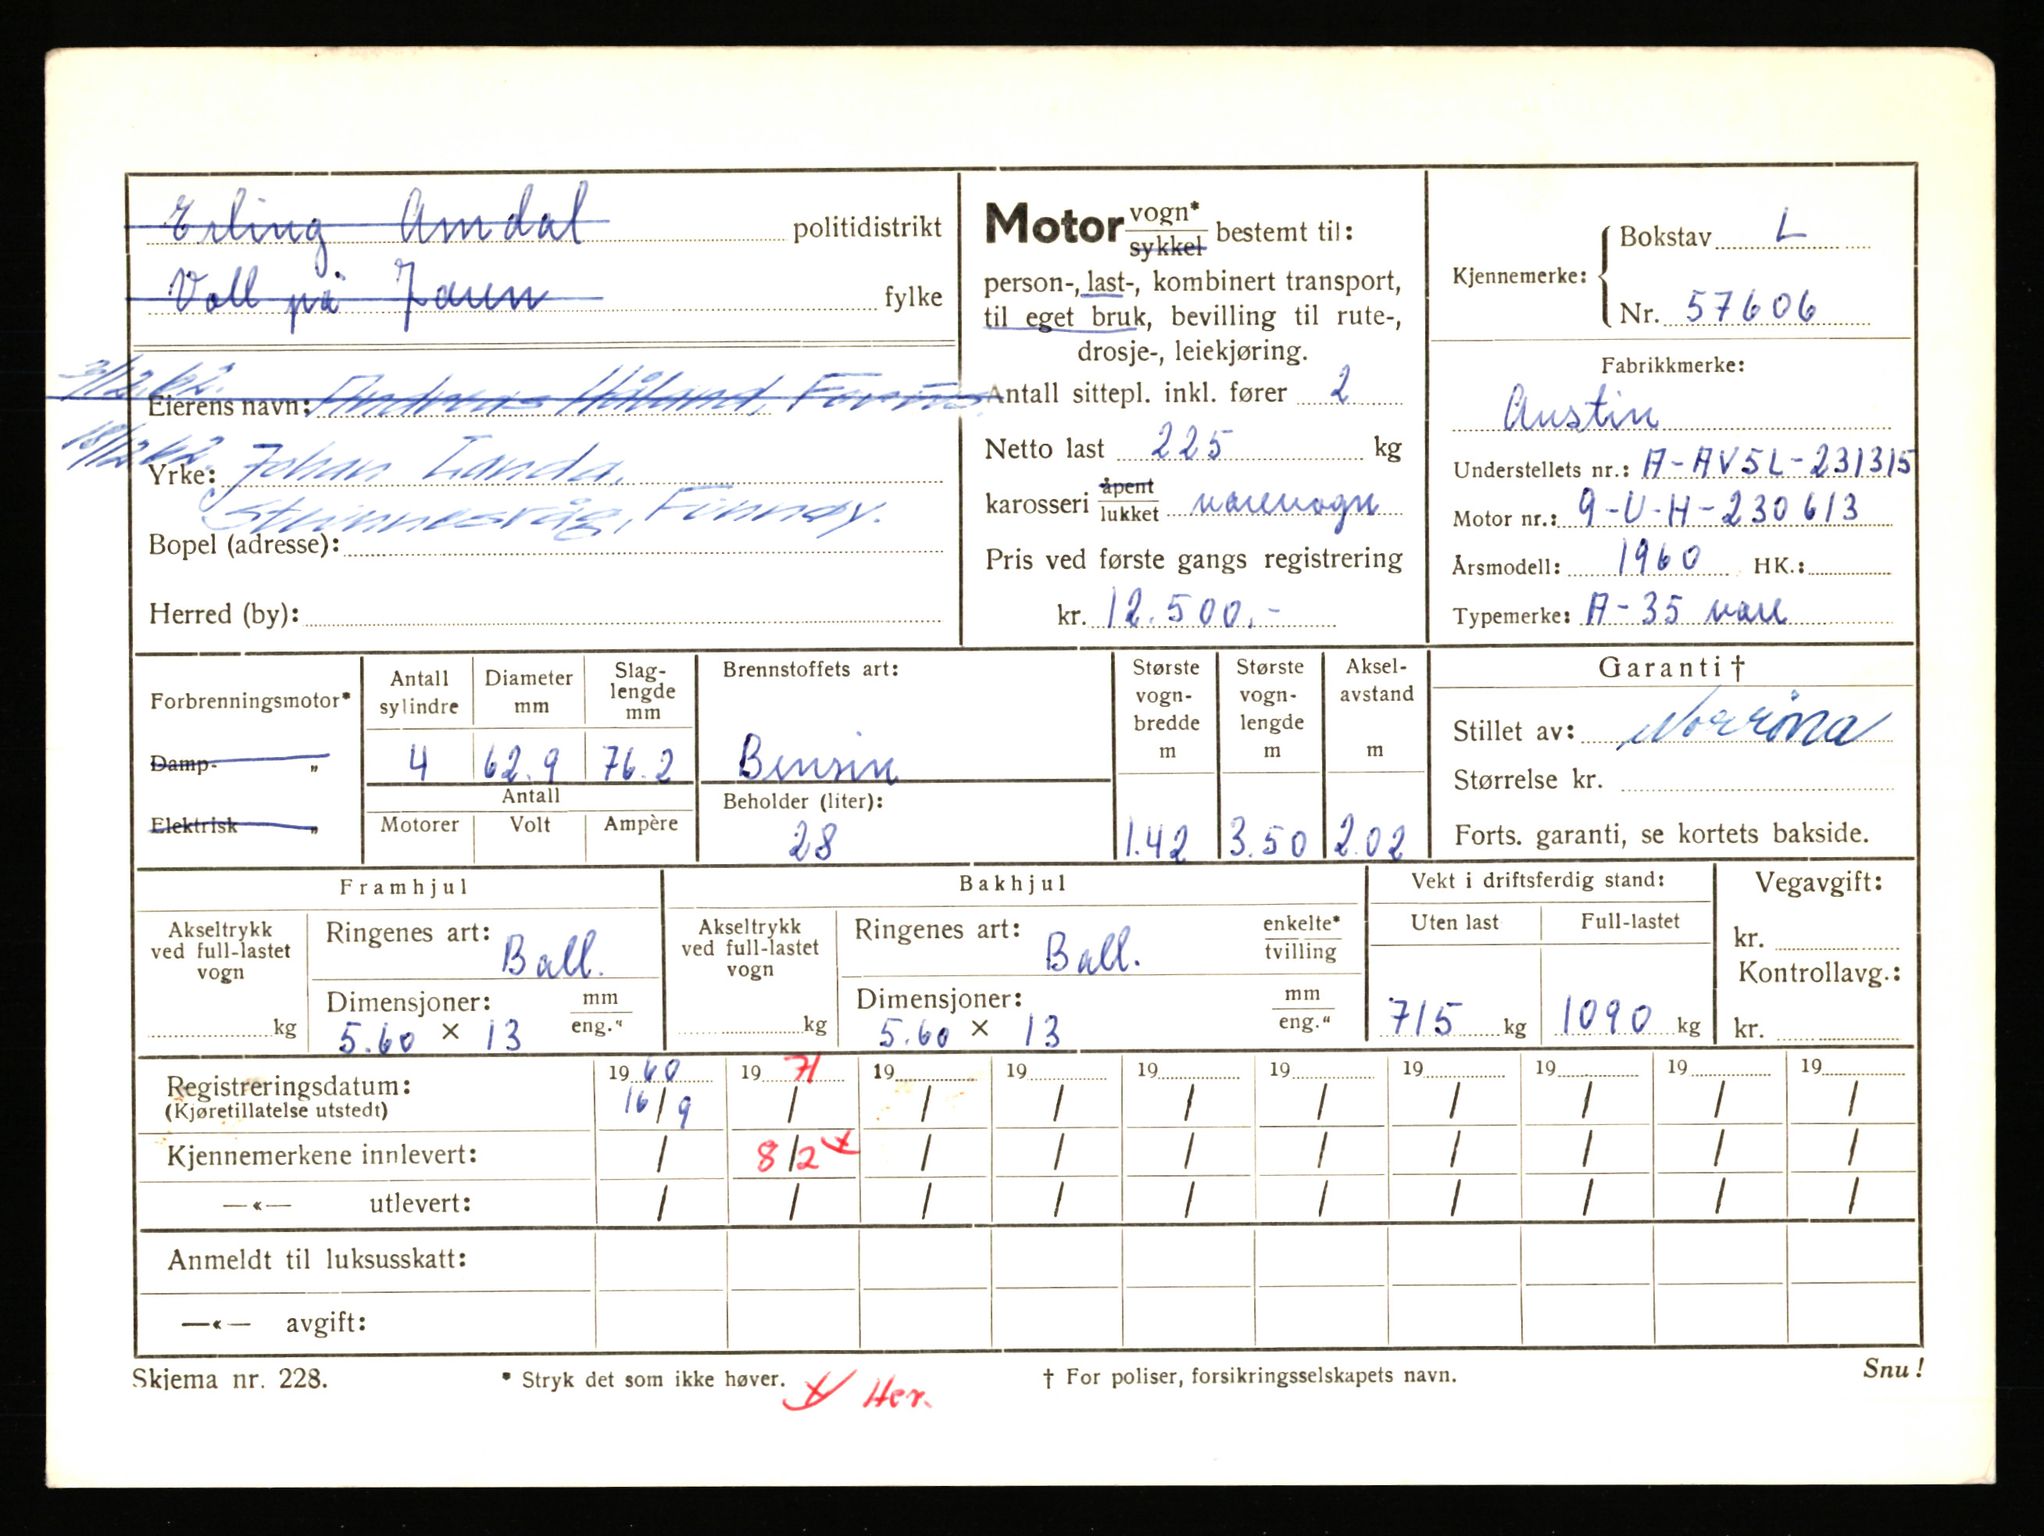 Erling Amdal politidistrikt
Voll på Jæren fylke
3/12.62.
Eierens navn: Andreas Håland,
18/12 62.
Yrke: Johan Landa.
Finnøy.
Bopel (adresse):
Herred (by):
Motor vogn* sykkel bestemt til:
person-, last-, kombinert transport,
til eget bruk, bevilling til rute-,
drosje-, leiekjøring.
Antall sittepl. inkl. fører 2
Netto last 225 kg
karosseri åpent lukket varevogn
Pris ved første gangs registrering
kr. 12.500.-
Kjennemerke: Bokstav L
Nr. 57606
Fabrikkmerke:
Austin
Understellets nr.: A-AV5L-231315
Motor nr.: 9-U-H-230613
Årsmodell: 1960 HK.:
Typemerke: A-35 vare
Forbrenningsmotor*
Damp- „
Elektrisk „
Antall sylindre
4
Diameter mm
62.9
Slaglengde mm
76.2
Antall
Motorer Volt Ampère
Brennstoffets art:
Bensin
Beholder (liter):
28
Største vognbredde m
1.42
Største vognlengde m
3.50
Akselavstand m
2.02
Garanti †
Stillet av: Norrøna
Størrelse kr.
Forts. garanti, se kortets bakside.
Framhjul
Akseltrykk
ved full-lastet
vogn
kg
Ringenes art: Ball.
Dimensjoner: mm eng."
5.60 × 13
Bakhjul
Akseltrykk
ved full-lastet
vogn
kg
Ringenes art: Ball. enkelte* tvilling
Dimensjoner: mm eng."
5.60 × 13
Vekt i driftsferdig stand:
Uten last Full-lastet
715 kg 1090 kg
Vegavgift:
kr.
Kontrollavg.:
kr.
Registreringsdatum: 19 60 19 71 19 19 19 19 19 19 19 19
(Kjøretillatelse utstedt) 16/9 / / / / / / / / /
Kjennemerkene innlevert: / 8/2 x / / / / / / / /
—«— utlevert: / / / / / / / / / /
Anmeldt til luksusskatt:
—«— avgift:
Skjema nr. 228.
* Stryk det som ikke høver.
x Her.
† For poliser, forsikringsselskapets navn.
Snu!